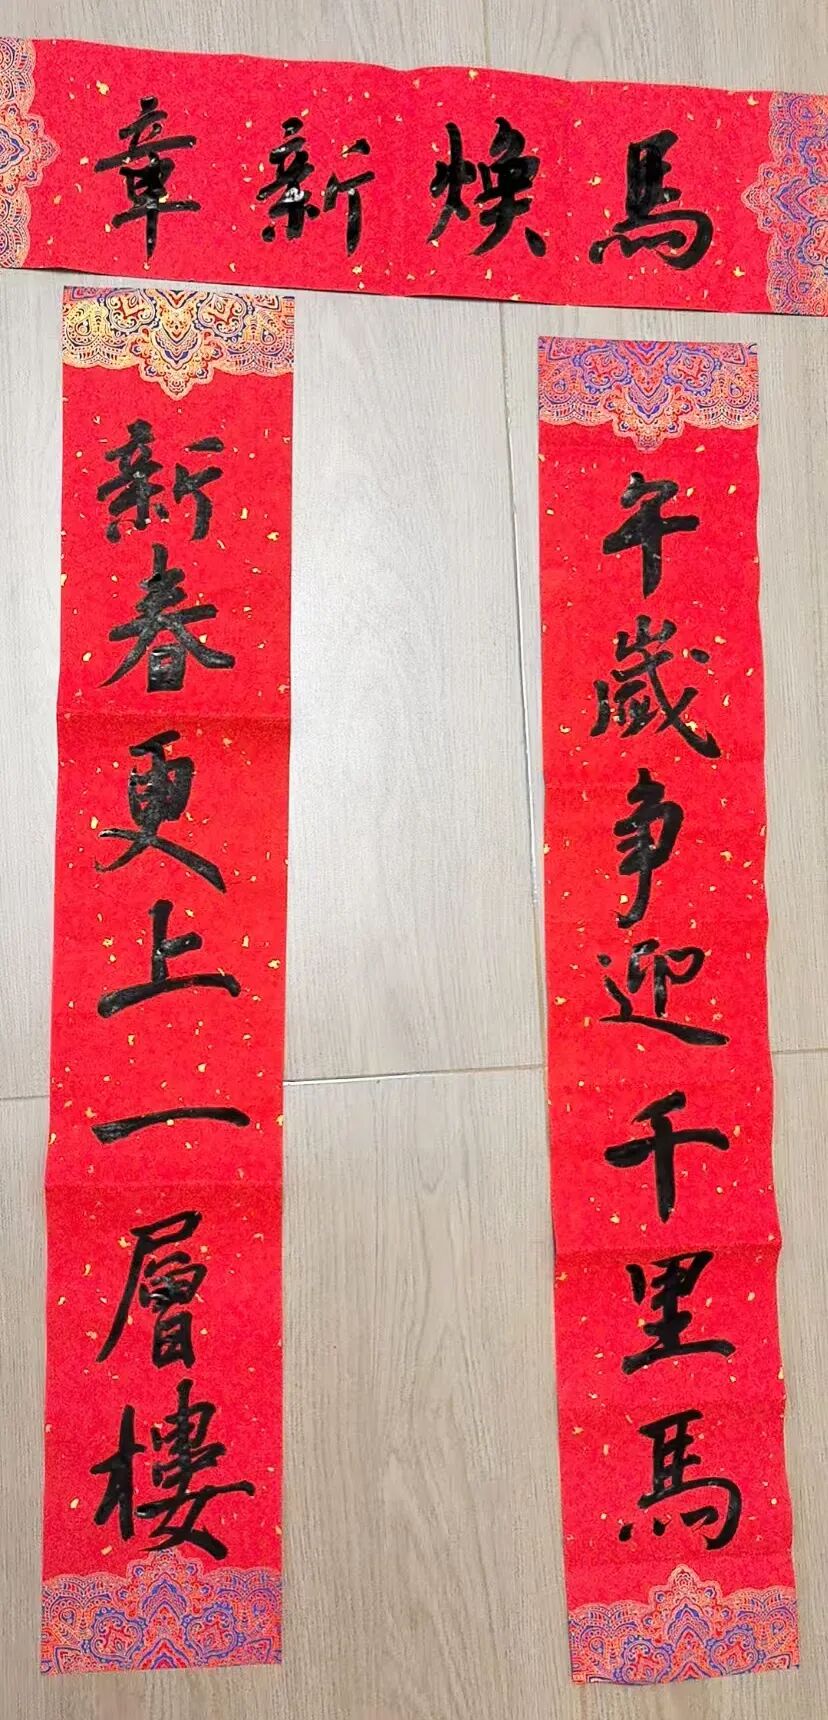 馬煥新章
午歲争迎千里馬
新春更上一層樓